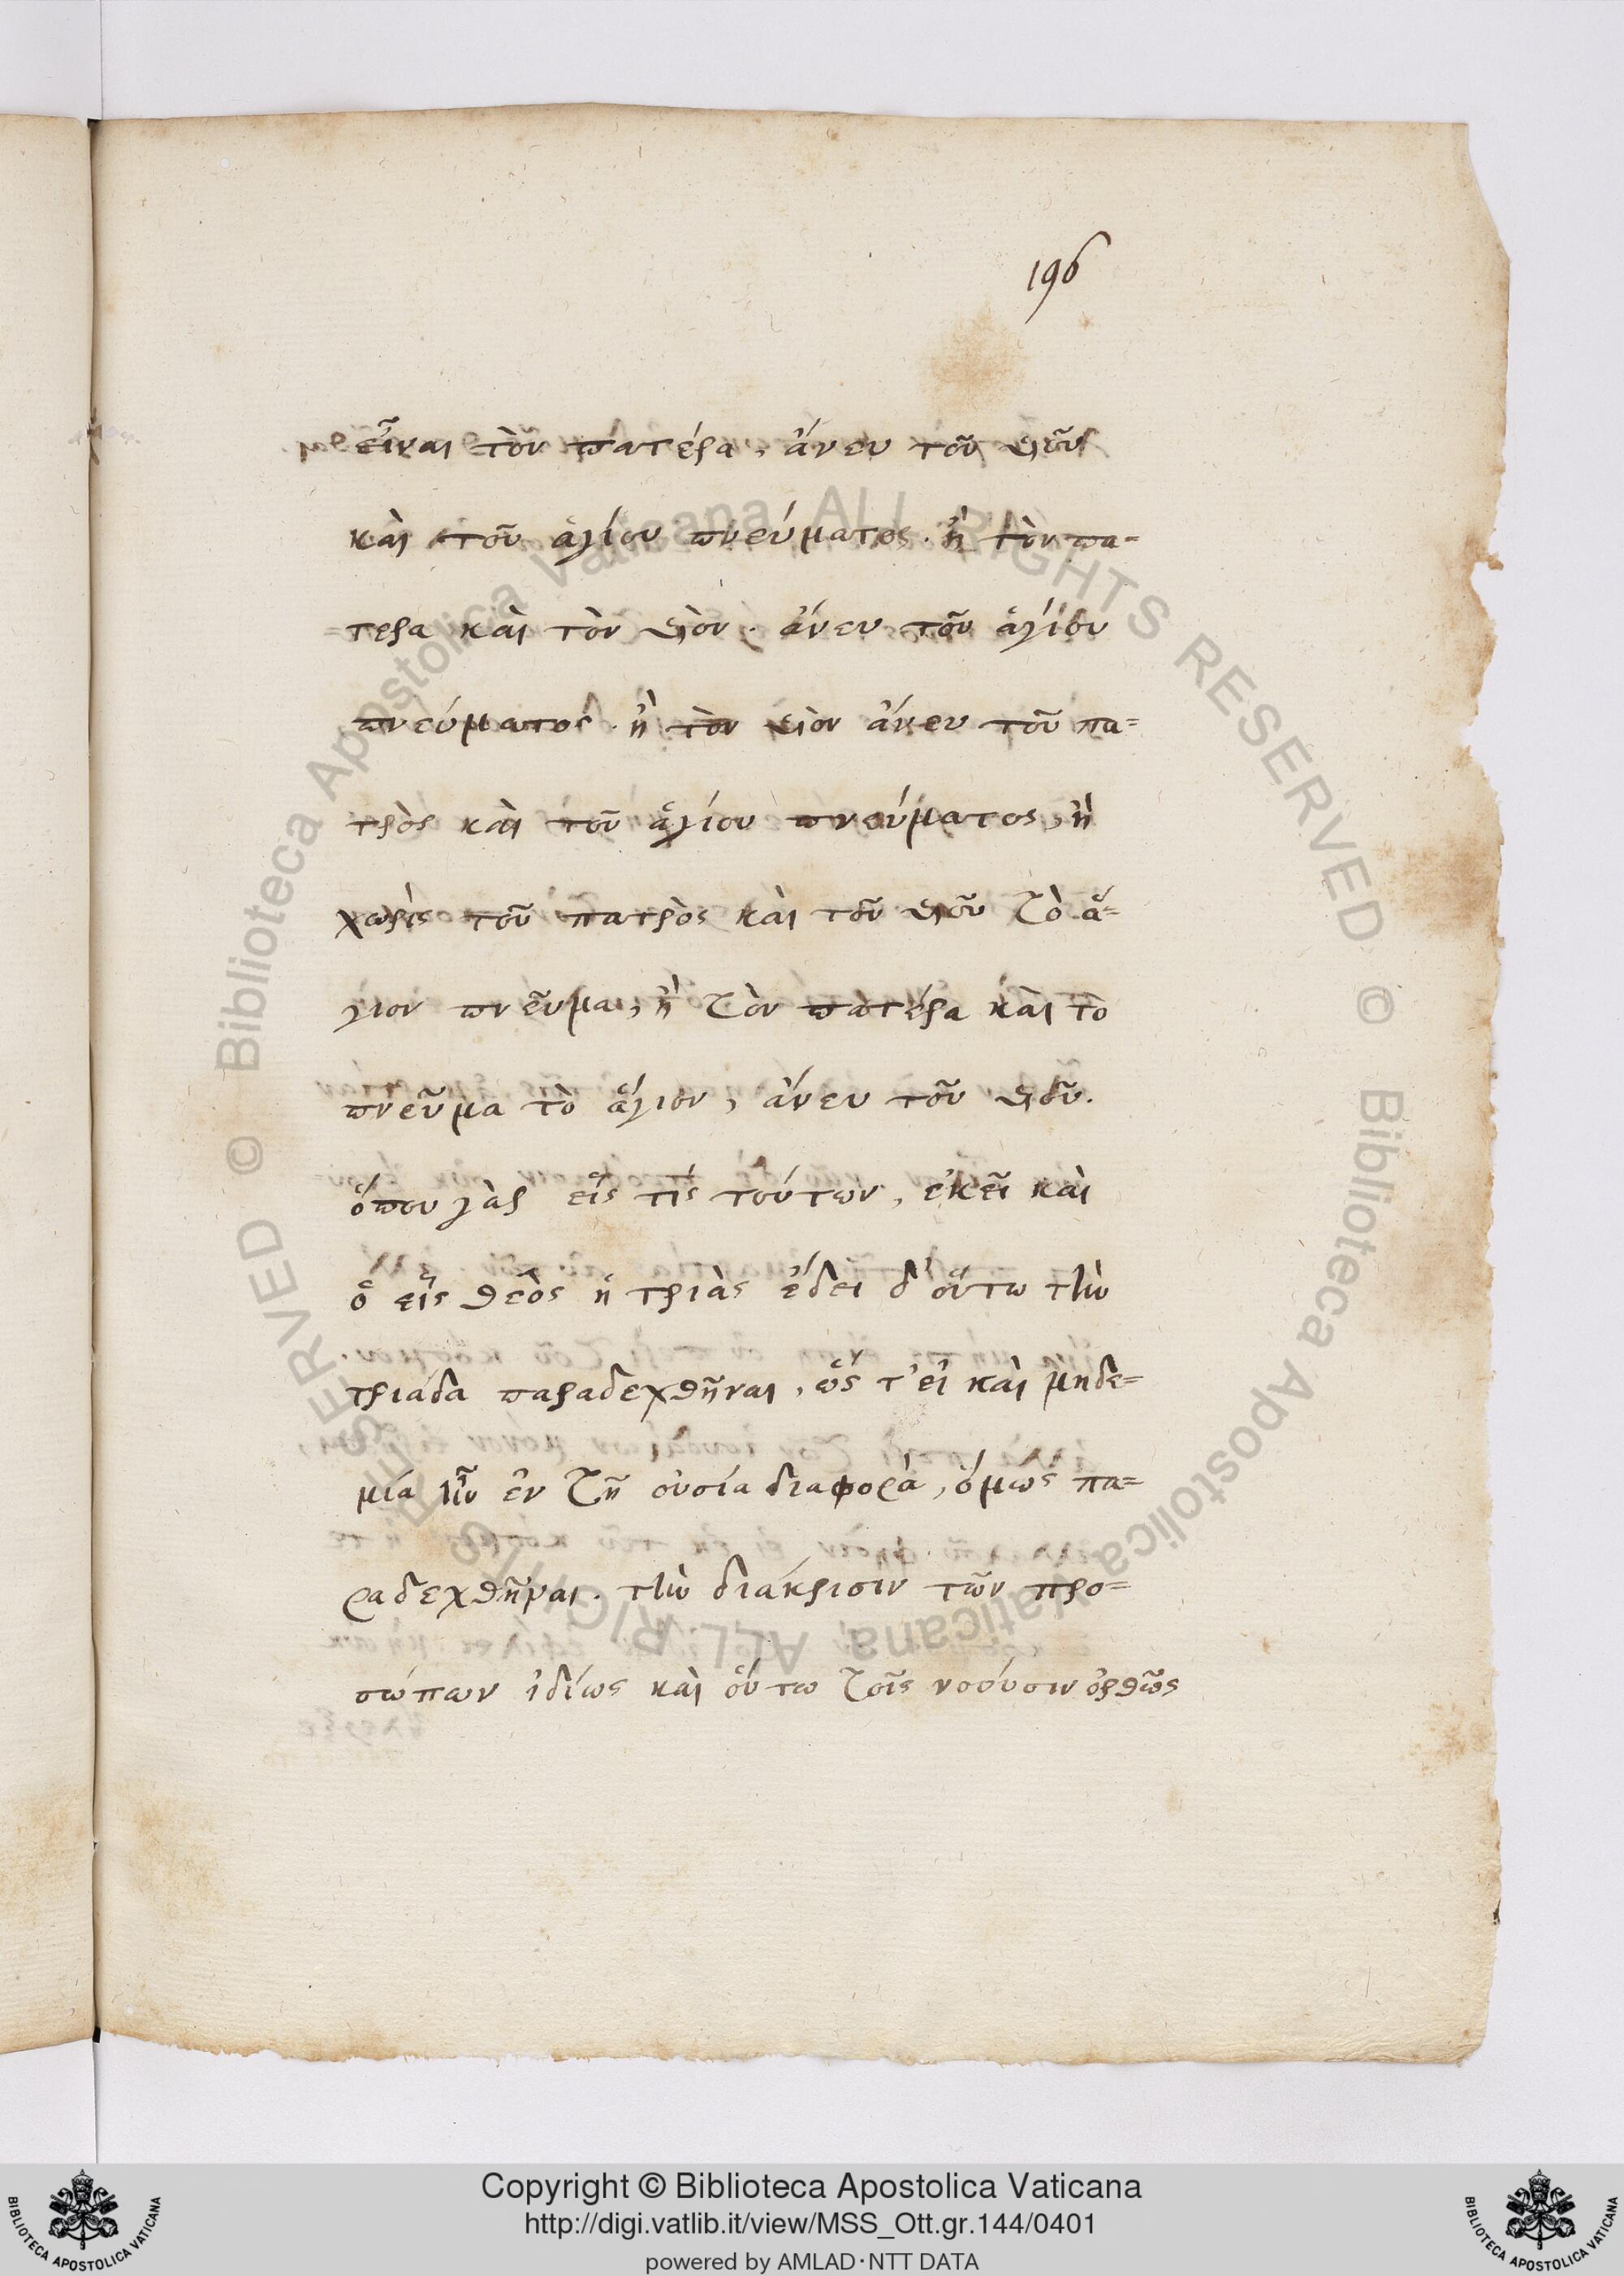 196
εἶναι τὸν πατέρα, ἄνευ τοῦ υἱοῦ
καὶ τοῦ ἁγίου πνεύματος. ἢ τὸν πα=
τερα καὶ τὸν υἱὸν. ἄνευ τοῦ ἁγίου
πνεύματος. ἢ τὸν υἱὸν ἄνευ τοῦ πα=
τρὸς καὶ τοῦ ἁγίου πνεύματος, ἢ
χωρὶς τοῦ πατρὸς καὶ τοῦ υἱοῦ τὸ ἅ=
γιον πνεῦμα, ἢ τὸν πατέρα καὶ τὸ
πνεῦμα τὸ ἅγιον, ἄνευ τοῦ υἱοῦ.
ὅπου γὰρ εἷς τίς τούτων, ἐκεῖ καὶ
ὁ εἷς θεὸς ἡ τριὰς ἔδει δ' οὕτω τὴν
τριάδα παραδεχθῆναι, ὥς τ' εἰ καὶ μηδε=
μία ἦν ἐν τῆ οὐσία διαφορὰ, ὅμως πα=
ραδεχθῆναι. τὴν διάκρισιν τῶν προ=
σώπων ἰδίως καὶ οὕτω τοῖς νοσύσιν ὀρθῶς
Copyright © Biblioteca Apostolica Vaticana
http://digi.vatlib.it/view/MSS_Ott.gr.144/0401
powered by AMLAD·NTT DATA
BIBLIOTECA APOSTOLICA VATICANA
BIBLIOTECA APOSTOLICA VATICANA
© Biblioteca Apostolica Vaticana ALL RIGHTS RESERVED
© Biblioteca Apostolica Vaticana ALL RIGHTS RESERVED